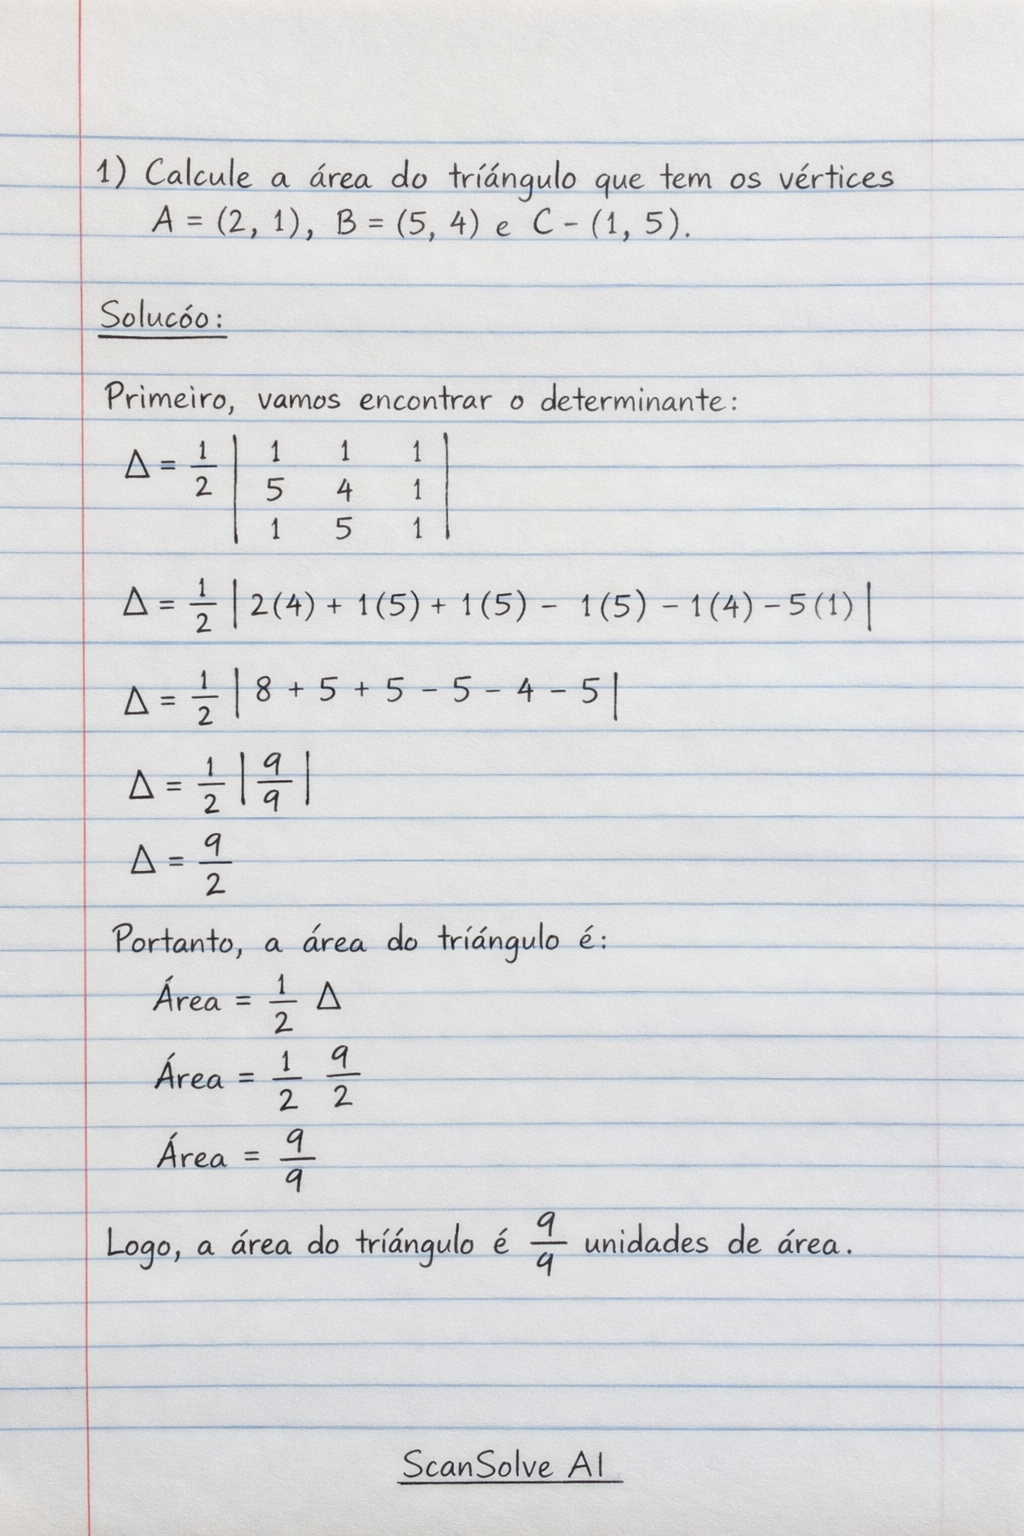 1) Calcule a área do tríángulo que tem os vértices
A = (2, 1), B = (5, 4) e C - (1, 5).
Solucóo:
Primeiro, vamos encontrar o determinante:
Δ = 1/2 | 1 1 1
5 4 1
1 5 1 |
Δ = 1/2 | 2(4) + 1(5) + 1(5) - 1(5) - 1(4) - 5(1) |
Δ = 1/2 | 8 + 5 + 5 - 5 - 4 - 5 |
Δ = 1/2 | 9/9 |
Δ = 9/2
Portanto, a área do tríángulo é:
Área = 1/2 Δ
Área = 1/2 9/2
Área = 9/9
Logo, a área do tríángulo é 9/9 unidades de área.
ScanSolve AI